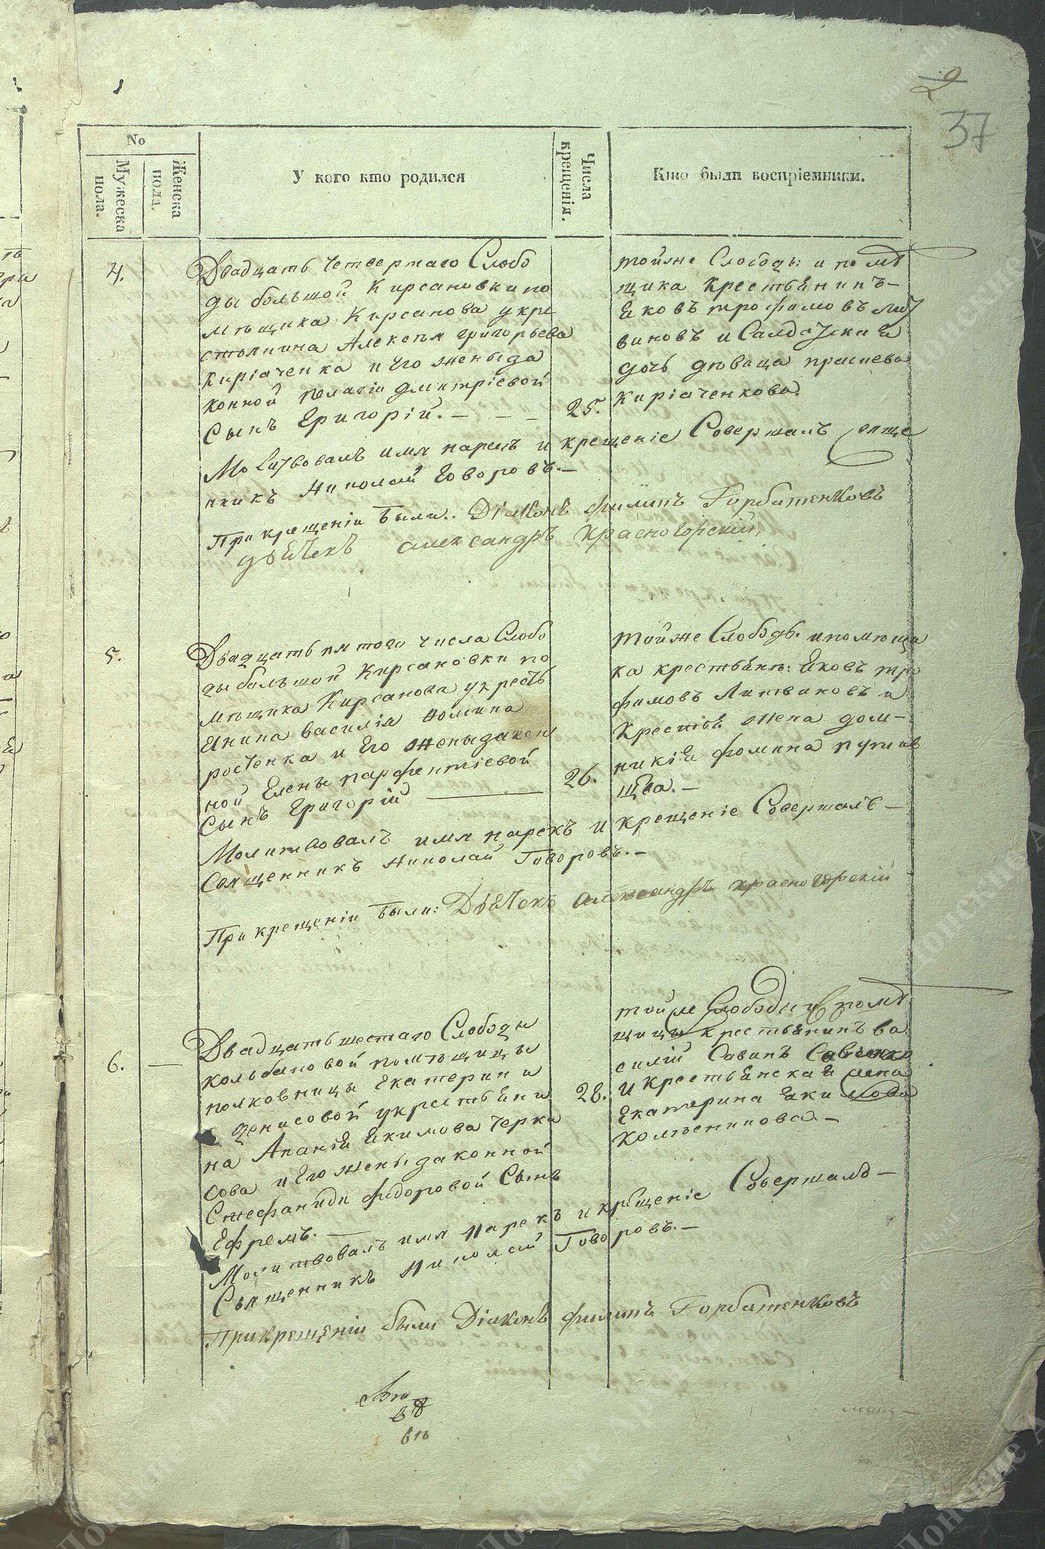 9
37
No
Мужеска пола.
Женска пола.
У кого кто родился
Числа крещенія.
Кто были воспріемники.
4.
Двадцать четвертаго Слобо
ды большой Кирсановки по
мѣщика Кирсанова укре
стьянина Алексѣя Григорьева
Киріаченка и Его жены за
конной Пелагіи Дмитріевой
Сынъ Григорій. — — —
25.
тойже Слободы и помѣ
щика Крестьянинъ
Яковъ трофимовъ лит
виновъ и
дочь дѣвица
Киріаченкова.
Молитвовалъ имя нарекъ и крещеніе Совершалъ Свяще
нникъ Николай Говоровъ. —
При крещеніи были. Діяконъ Филипъ Горбатенковъ
дьячекъ александръ Красногорскій,
5.
Двадцать пятого числа Слобо
ды большой Кирсановки по
мѣщика Кирсанова укресть
янина василія Фомина
ростенка и Его жены закон
ной Елены парфентіевой
Сынъ Григорій —
26.
тойже Слободы. и помѣщи
ка крестьянъ: Яковъ тро
фимовъ Литвиновъ и
Крестья жена дом—
никія фомина
Молитвовалъ имя нарекъ и крещеніе Совершалъ—
Священникъ Николай Говоровъ. —
При крещеніи были: Дьячекъ александръ Красногорскій
6.
—
Двадцать шестаго Слободы
помѣщицы
полковницы Екатерины
Денисовой укрестьяни
на Ананія Екимова Черка
сова и Его жены законной
Стефаниды фёдоровой Сынъ
Ефремъ. —
28.
тойже Слободы и помѣ
щицы крестьянинъ ва
силій Савинъ
и Крестьянская жена
Екатерина Екимова
Молитвовалъ имя нарекъ и крещеніе Совершалъ—
Священникъ Николай Говоровъ. —
При крещеніи были Діаконъ филипъ Горбатенковъ